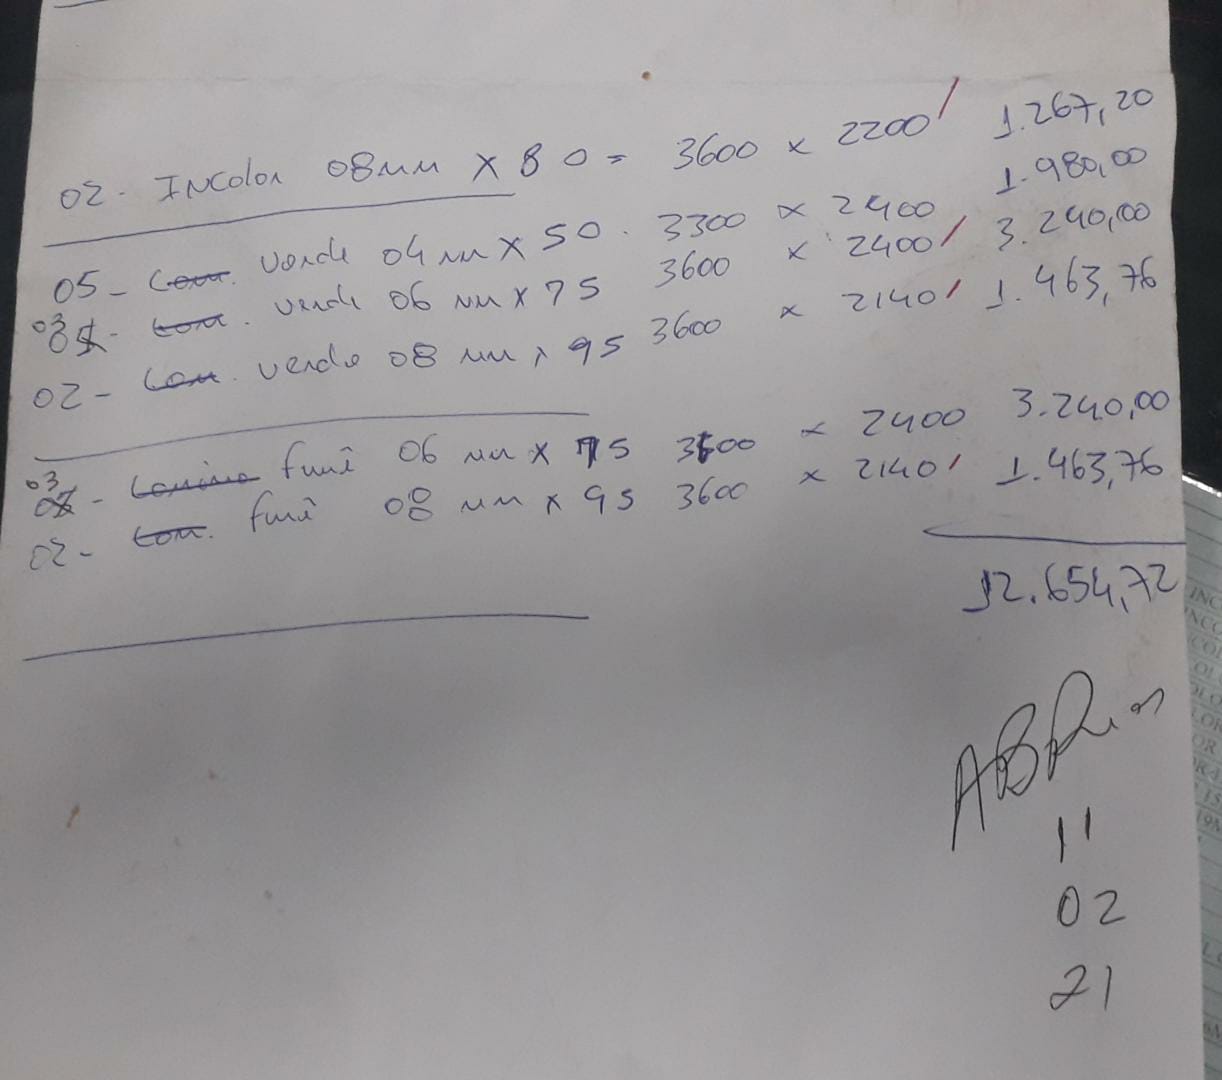 02 - INColor 08mm X 80 = 3600 x 2200 / 1.267,20
05 - Com. verde 04 mm X 50 . 3300 x 2400 1.980,00
03 - Com. verde 06 mm X 75 3600 x 2400 / 3.240,00
02 - Com. verde 08 mm x 95 3600 x 2140 / 1.463,76
03 - Lamina fumê 06 mm X 75 3600 x 2400 3.240,00
02 - Com. fumê 08 mm x 95 3600 x 2140 / 1.463,76
12.654,72
11
02
21